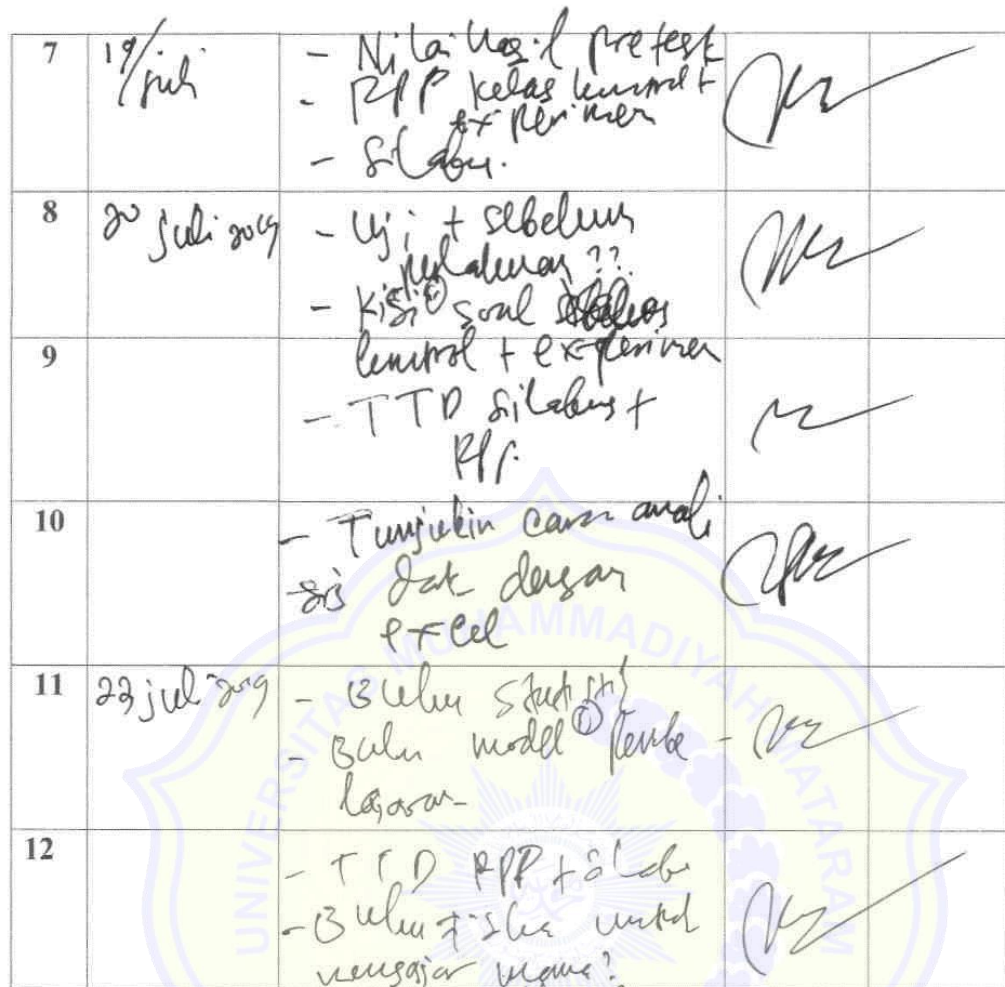 7 19/juli - Nilai hasil pretest
- RPP kelas kontrol +
experimen
- Silabus.
8 20 juli 2019 - Uji t sebelum
perlakuan ??
- Kisi² soal
9 kontrol + experimen
- TTD Silabus +
RPP.
10 - Tunjukin cara anali
sis dat dengan
excel
11 23 juli 2019 - Buku statistik
- Buku model² Pembe -
lajaran
12 - TTD RPP + silabus
- Buku untuk
mengajar mana?
UNIVERSITAS MUHAMMADIYAH MATARAM